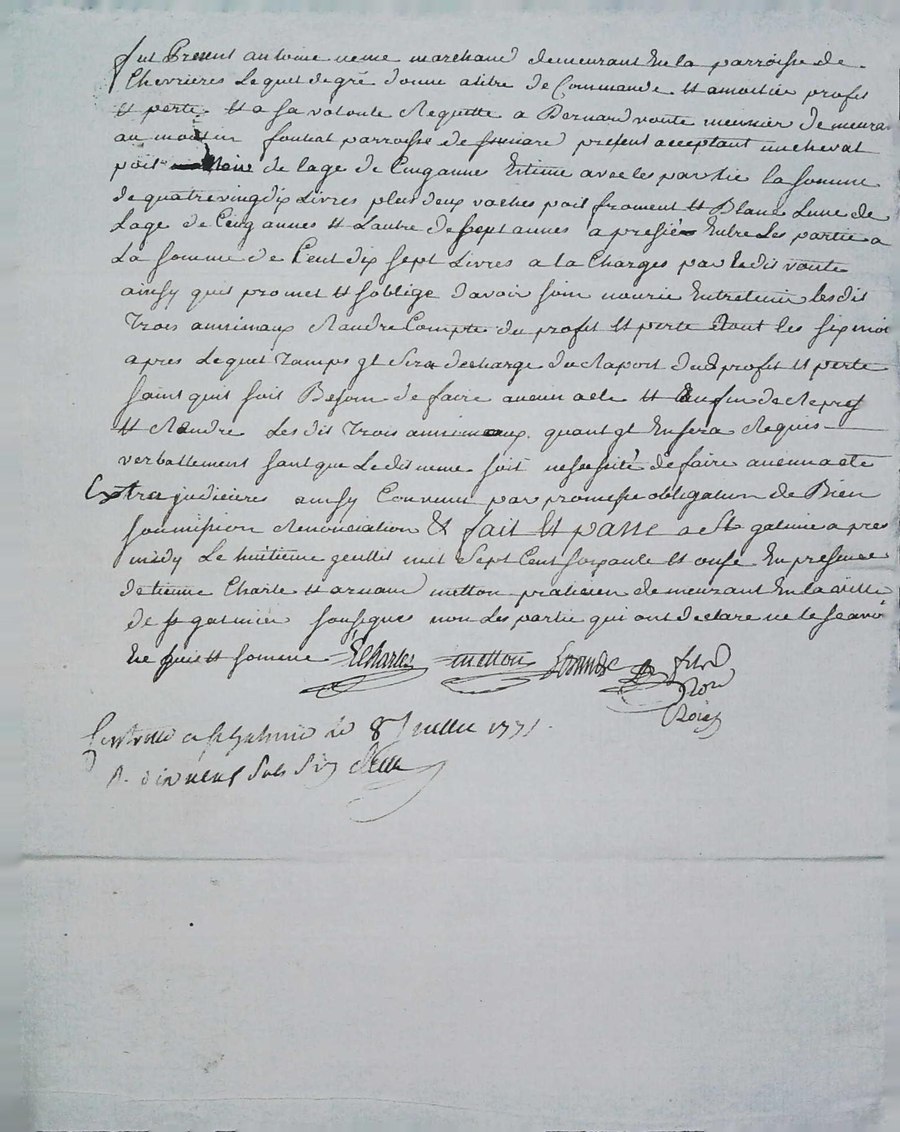 fut Present antoine neme marchand demeurant En la parroisse de
Chevrieres Lequel de gré donne a titre de Commande Et amoitié profit
Et perte Et a sa volonte Requette a Bernard voute meunier demeurant
au moulin fouhat parroisse de present acceptant un cheval
poil de lage de Cinq annes Estime avec les partie la somme
de quatre vingt dix Livres plus deux vaches poil froment Et Blanc Lune de
Lage de Cinq annes Et Lautre de sept annes apresié Entre Les partie a
La somme de Cent dix sept Livres a la Charges par Ledit voute
ainsy quil promet Et soblige davoir soin nourir Entretenir lesdit
Trois annimaux Randre Compte du profit Et perte tout les six moi
apres Lequel Tamps jl sera decharge du Raport dud profit Et perte
sans quil soit Besoin de faire aucun acte Et Enfin de
Et Randre Lesdit Trois annimaux quant jl En sera Requis
verballement sant que Ledit neme soit nesessité de faire aucun acte
Extra judiciere ainsy Convenu par promesse obligation de Bien
soumission Renonciation & fait Et passe a St galmier apres
midy Le huitieme geullit mil sept Cent soixante Et onse En presence
detienne Charle Et arnaud metton praticien demeurant En la ville
de st galmier sousignes non Les partie qui ont declare ne le scavoir
De Enquis Et somme ECharles metton
Controllé a St Galmier le 8 Juillet 1771
R. dix neuf sols six den